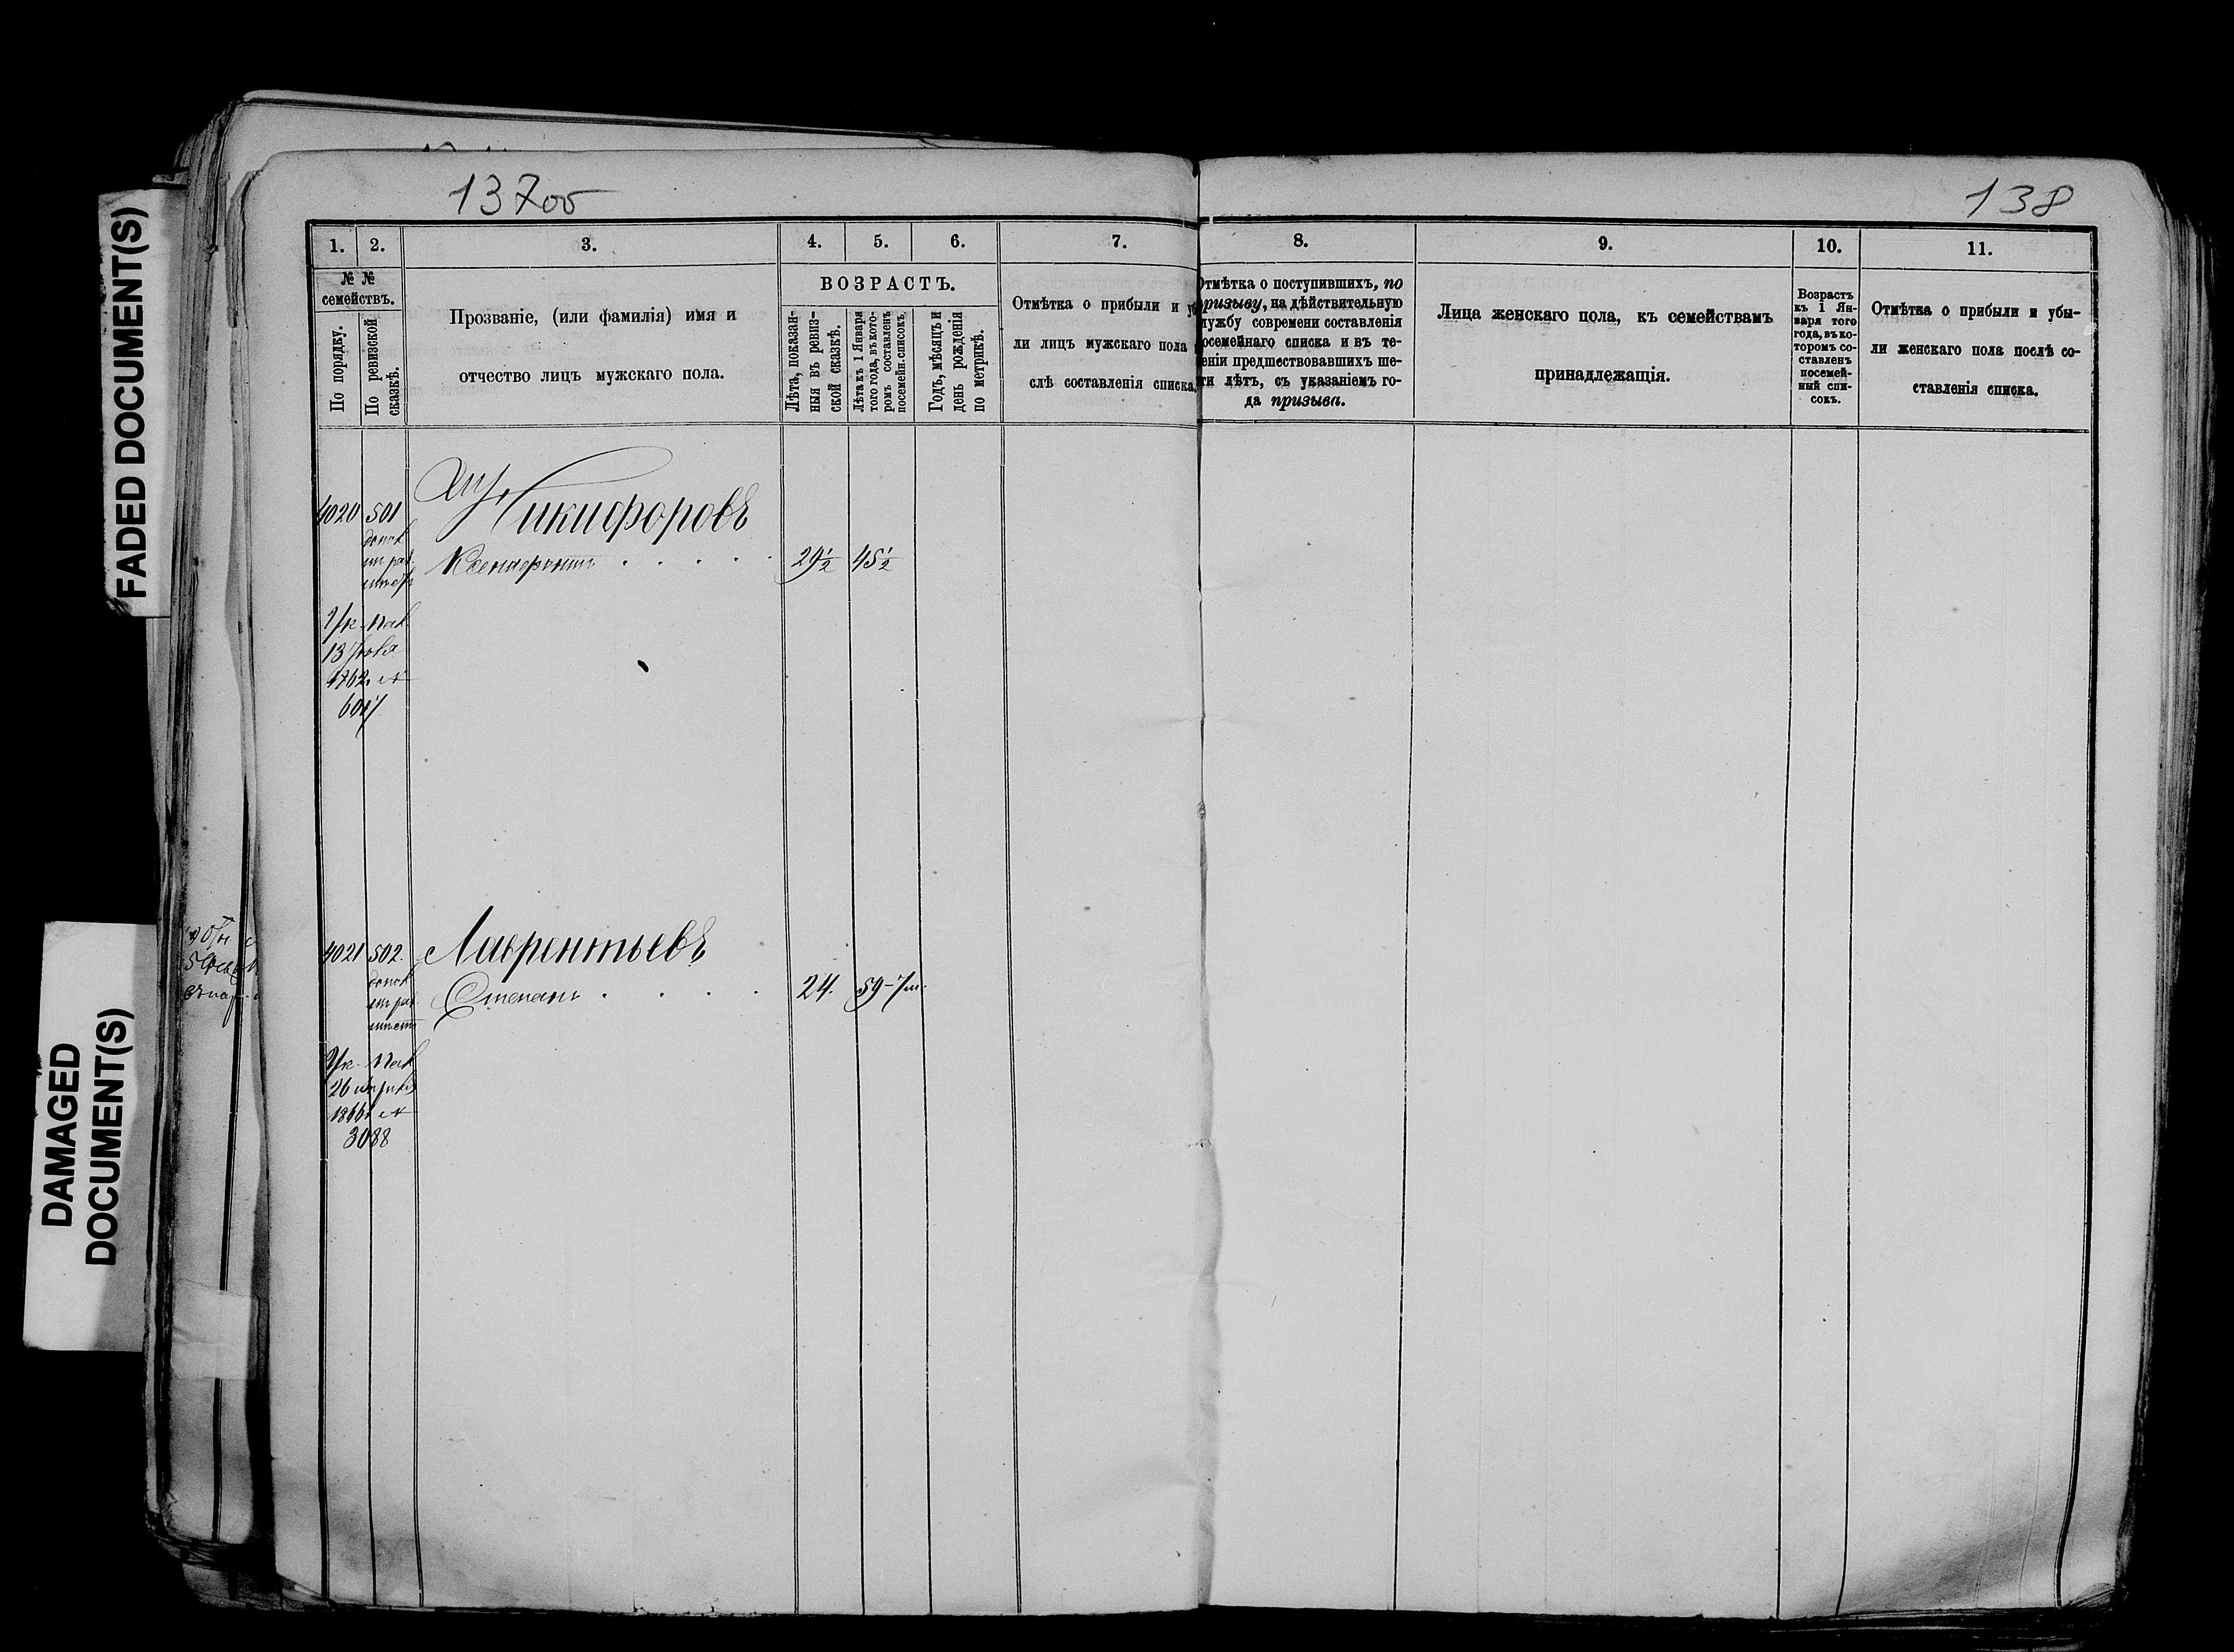 FADED DOCUMENT(S)
DAMAGED
DOCUMENT(S)
137об
138
1. 2. 3. 4. 5. 6. 7. 8. 9. 10. 11.
№ №
семействъ.
По порядку.
По ревизской
сказкѣ.
Прозваніе, (или фамилія) имя и
отчество лицъ мужскаго пола.
ВОЗРАСТЪ.
Лѣта, показан-
ныя въ ревиз-
ской сказкѣ.
Лѣта къ 1 Января
того года, въ кото-
ромъ составленъ
посемейн. списокъ.
Годъ, мѣсяцъ и
день рожденія
по метрикѣ.
Отмѣтка о прибыли и уб
ли лицъ мужскаго пола
слѣ составленія списка.
Отмѣтка о поступившихъ, по
призыву, на дѣйствительную
лужбу современи составленія
осемейнаго списка и въ те-
еніи предшествовавшихъ ше-
ти лѣтъ, съ указаніемъ го-
да призыва.
Лица женскаго пола, къ семействамъ
принадлежащія.
Возрастъ
къ 1 Ян-
варя того
года, въ ко-
торомъ со-
ставленъ
посемей-
ный спи-
сокъ.
Отмѣтка о прибыли и убы-
ли женскаго пола послѣ со-
ставленія списка.
4020 501 Никифоровъ
Ксенофонтъ 29½ 45½
13
4021 502. Лаврентьевъ
Степанъ 24. 59-7м.
26 апрѣля
3088